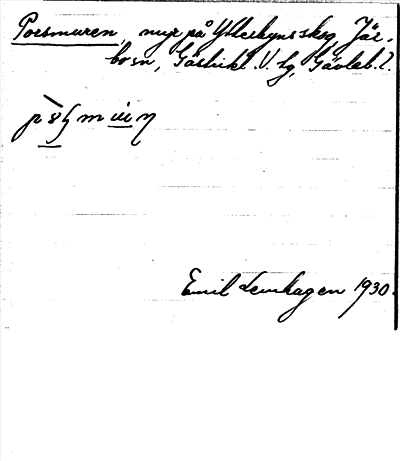 Porsmuren, myr på Ytterbyns skog Jär-
bo sn, Gästrikl. V. tg, Gävleb. l.
Emil Lemhagen 1930.